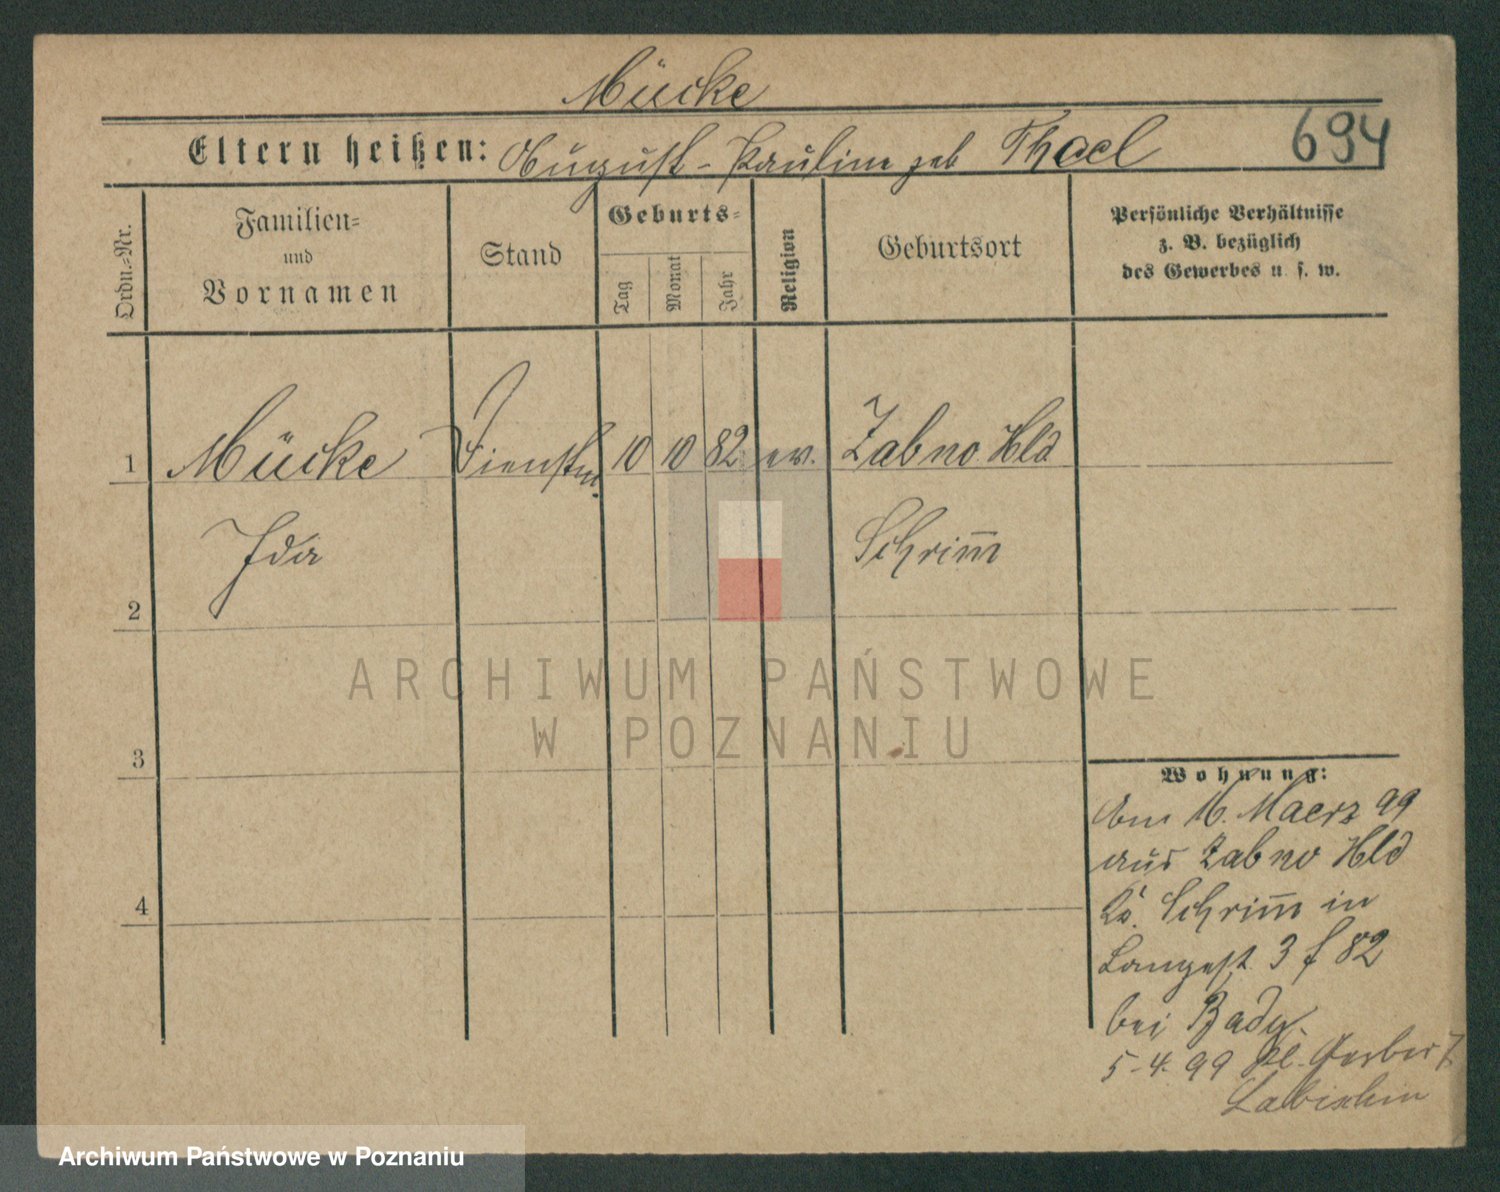 Mücke
Eltern heißen: August - Pauline geb Thael
694
Ordn.-Nr.
Familien-
und
Vornamen
Stand
Geburts-
Tag
Monat
Jahr
Religion
Geburtsort
Persönliche Verhältnisse
z. B. bezüglich
des Gewerbes u. s. w.
1 Mücke Dienstm. 10 10 82 ev. Zabno Hld
Ida Schrim̅
2
3
4
Wohnung:
Am 16. Maerz 99
aus Zabno Hld
Ks. Schrim̅ in
Langest. 3 f 82
bei Bady.
5-4. 99 Kl. Gerber 7
Labischin
ARCHIWUM PAŃSTWOWE
W POZNANIU
Archiwum Państwowe w Poznaniu